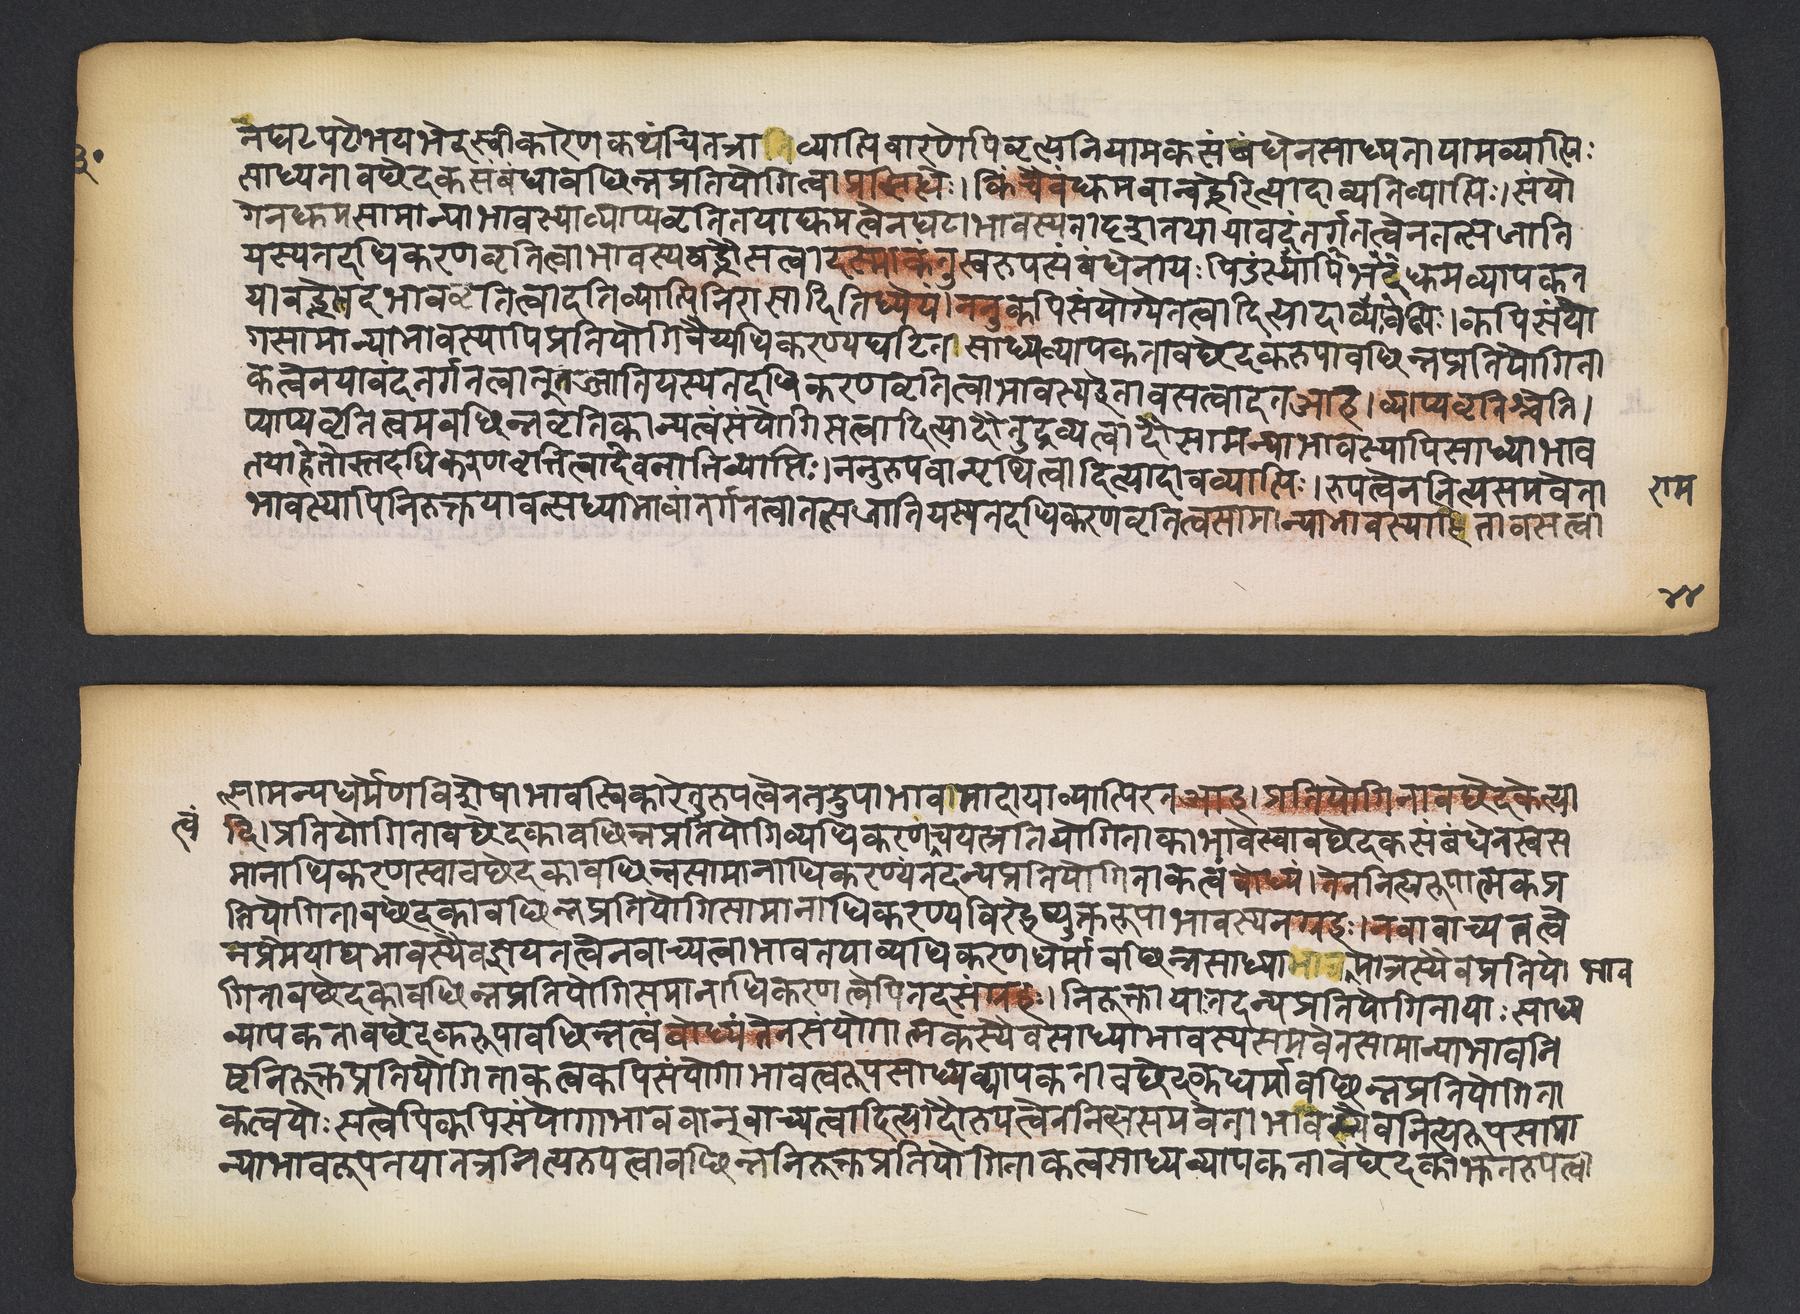 नघटपटोभयभेदस्वीकारेणकथंचितत्राव्याप्तिवारणेपिवृत्त्यनियामकसंबंधेनसाध्यतायामव्याप्तिः
३०
साध्यतावछेदकसंबंधावछिन्नप्रतियोगित्वाप्रसिद्धेः। किंचैवंधूमवान्वह्नेरित्यादावतिव्याप्तिः। संयो
गेनधूमसामान्याभावस्याव्याप्यवृत्तितयाधूमत्वेनघटाभावस्यतादृशतयायावदंतर्गतत्वेनतत्सजाति
यस्यतदधिकरणवृत्तित्वाभावस्यवह्नौसत्वादस्माकंतुस्वरूपसंबंधेनायःपिंडस्यापिभेदेधूमव्यापकत
यावद्भेदाभाववृत्तित्वादतिव्याप्तिनिरासादितिध्येयं। ननुकपिसंयोग्येतत्वादित्यादावव्याप्तिः। कपिसंयो
गसामान्याभावस्यापिप्रतियोगिवैय्यधिकरण्यघटितसाध्यव्यापकतावछेदकरूपावछिन्नप्रतियोगिता
कत्वेनयावदंतर्गतत्वात्तत्सजातियस्यतदधिकरणवृत्तित्वाभावस्यहेतावसत्वादतआह। व्याप्यवृत्तिश्चेति।
व्याप्यवृत्तित्वमवछिन्नवृत्तिकान्यत्वंसंयोगिसत्वादित्यादौतुद्रव्यत्वादौसामान्याभावस्यापिसाध्याभाव
तयाहेतोस्तदधिकरणवृत्तित्वादेवनातिव्याप्तिः। ननुरूपवान्पृथिवित्वादित्यादावव्याप्तिः। रूपत्वेननित्यसमवेता
राम
भावस्यापिनिरुक्तयावत्साध्याभावांतर्गतत्वात्तत्सजातियस्यतदधिकरणवृत्तित्वसामान्याभावस्यापिहेतावसत्वा
४४
त्सामान्यधर्मेणविशेषाभावस्विकारेतुरूपत्वेनतद्रूपाभावमादायाव्याप्तिरतआह। प्रतियोगितावछेदकेत्या
दि। प्रतियोगितावछेदकावछिन्नप्रतियोगिव्यधिकरणंचयत्प्रतियोगिताकाभावस्वावछेदकसंबंधेनस्वस
त्वं
मानाधिकरणस्वावछेदकावछिन्नसामानाधिकरण्यंतदन्यप्रतियोगिताकत्वंबोध्यं। तेननित्यरूपात्मकप्र
तियोगितावछेदकावछिन्नप्रतियोगिसामानाधिकरण्यविरहेप्युक्तरूपाभावस्यनसंग्रहः। नवावाच्यतत्वे
नप्रमेयाद्यभावस्यैवज्ञेयतत्वेनवाच्यत्वाभावतयाव्यधिकरणधर्मावछिन्नसाध्याभावमात्रस्यैवप्रतियो
भाव
गितावछेदकावछिन्नप्रतियोगिसमानाधिकरणत्वेपितदसंग्रहः। निरुक्तायातदन्यप्रतियोगितायाःसाध्य
व्यापकतावछेदकरूपावछिन्नत्वंबोध्यंतेनसंयोगात्मकस्यैवसाध्याभावस्यसमवेतसामान्याभावनि
ष्टनिरुक्तप्रतियोगिताकत्वकपिसंयोगाभावत्वरूपसाध्यव्यापकतावछेदकधर्मावछिन्नप्रतियोगिता
कत्वयोःसत्वेपिकपिसंयोगाभाववान्वाच्यत्वादित्यादौरूपत्वेननित्यसमवेताभावस्यैवनित्यरूपसामा
न्याभावरूपतयातत्रनित्यरूपत्वावछिन्ननिरुक्तप्रतियोगिताकत्वसाध्यव्यापकतावछेदकीभूतरूपत्वा